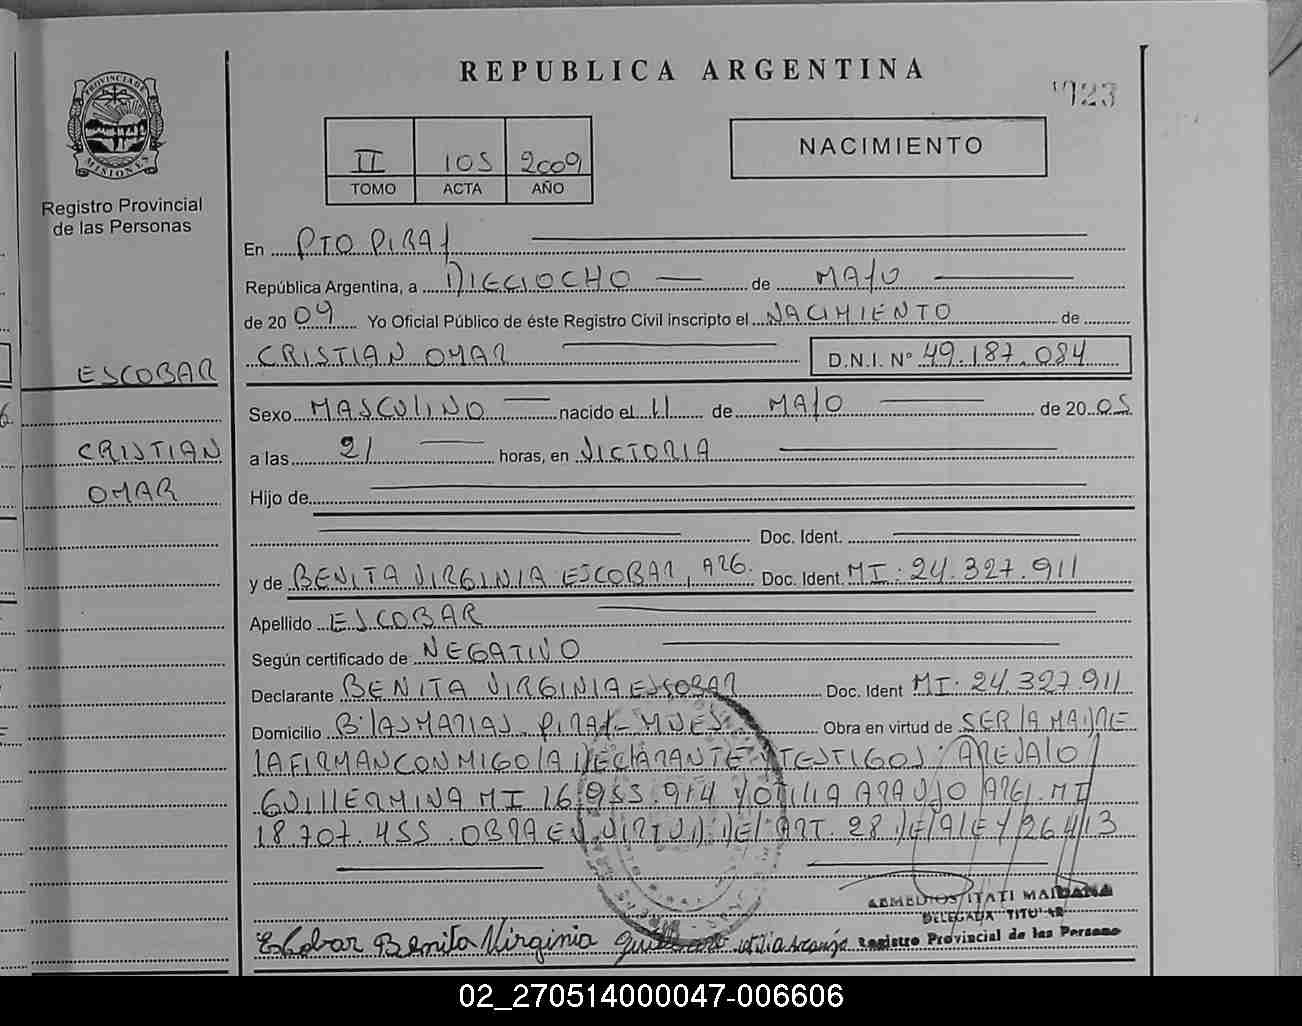 PROVINCIA DE
MISIONES
Registro Provincial
de las Personas
ESCOBAR
CRISTIAN
OMAR
REPUBLICA ARGENTINA
723
II 105 2009
TOMO ACTA AÑO
NACIMIENTO
En PTO PIRAY
República Argentina, a DIECIOCHO de MAYO
de 2009 Yo Oficial Público de éste Registro Civil inscripto el NACIMIENTO de
CRISTIAN OMAR D.N.I. N° 49.187.084
Sexo MASCULINO nacido el 11 de MAYO de 2005
a las 21 horas, en VICTORIA
Hijo de
Doc. Ident.
y de BENITA VIRGINIA ESCOBAR, ARG. Doc. Ident. MI: 24.327.911
Apellido ESCOBAR
Según certificado de NEGATIVO
Declarante BENITA VIRGINIA ESCOBAR Doc. Ident MI. 24.327.911
Domicilio B. LAS MARIAS. PIRAY - MNES Obra en virtud de SER LA MADRE
LA FIRMAN CONMIGO LA DECLARANTE Y TESTIGOS: AREVALO
GUILLERMINA MI 16.955.914 Y OTILIA ARAUJO ARG. MI
18.707.455. OBRA EN VIRTUD DEL ART. 28 DE LA LEY 26413
Escobar Benita Virginia
REMEDIOS ITATI MAIDANA
DELEGADA TITULAR
Registro Provincial de las Persona
02_270514000047-006606